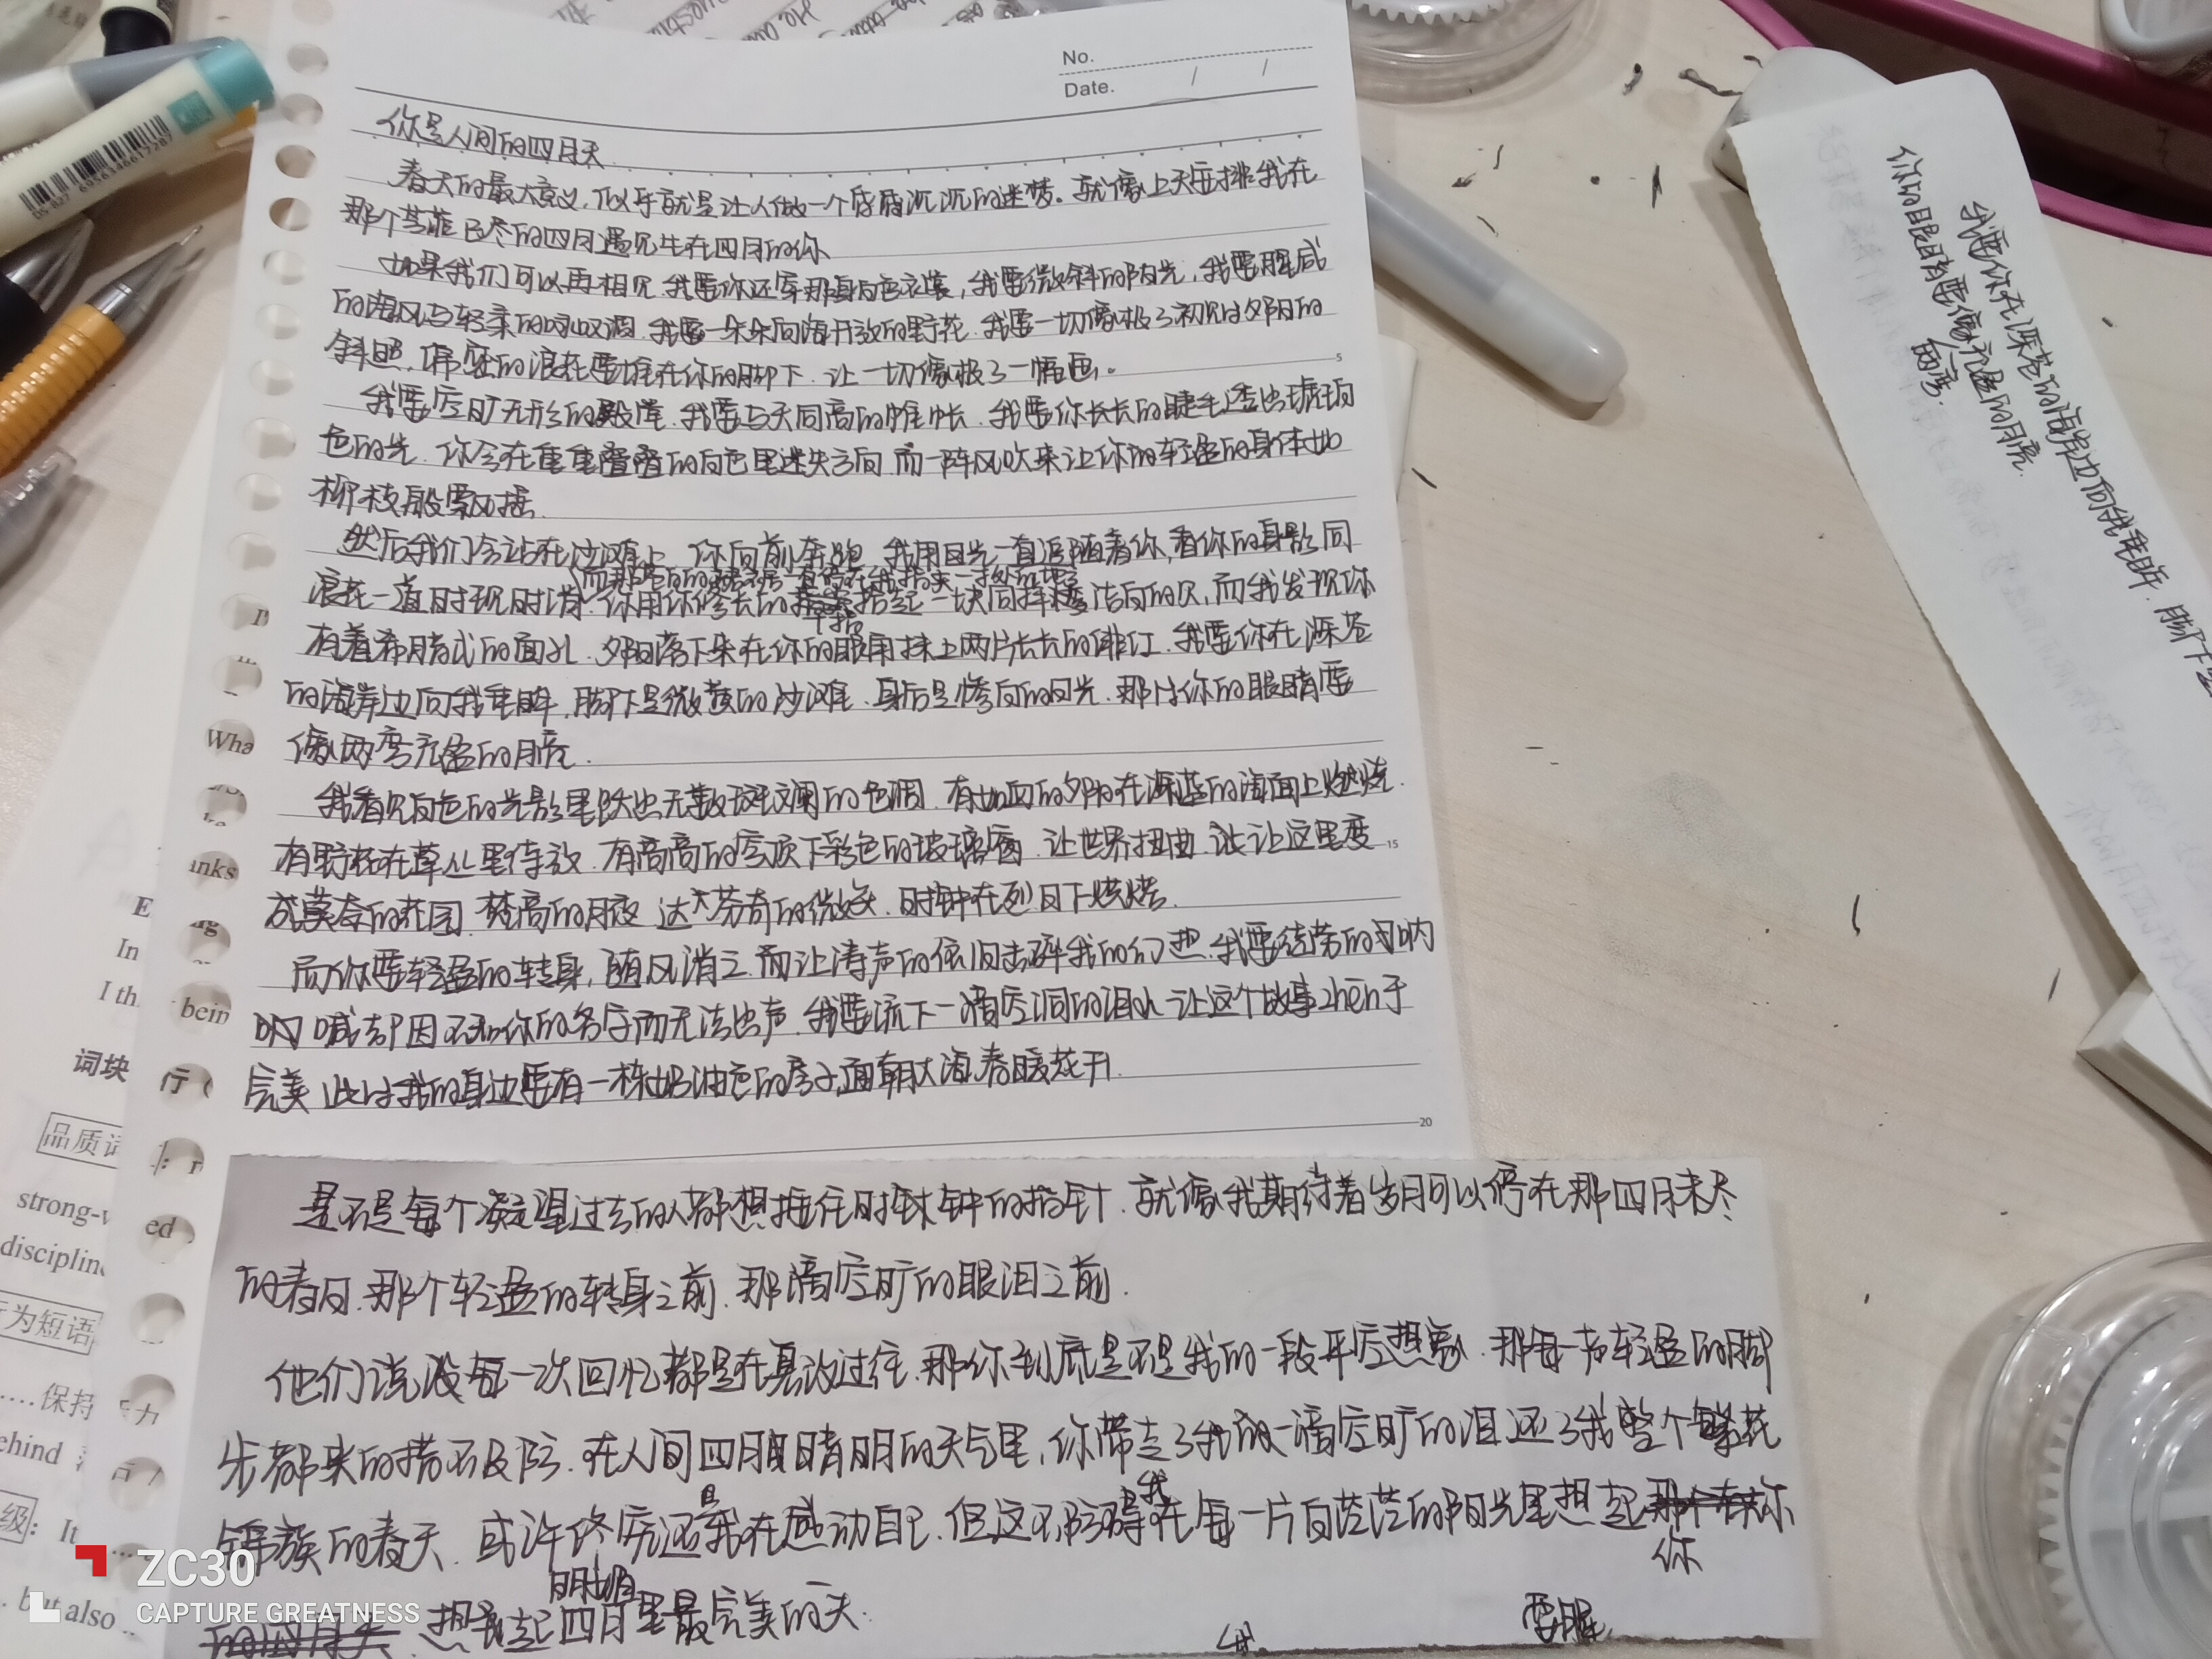 No.
Date. / /
你是人间的四月天
春天的最大意义,似乎就是让人做一个昏昏沉沉的迷梦。就像上天安排我在
那个芳菲已尽的四月遇见生在四月的你
如果我们可以再相见,我要你还穿那身白色衣装,我要微斜的阳光,我要腥咸
的海风与轻柔的咏叹调,我要一朵朵向海开放的野花,我要一切像极了初见时夕阳的
斜照,的浪花要堆在你的脚下,让一切像极了一幅画。
我要空旷无形的殿堂,我要与天同高的帷帐,我要你长长的睫毛透出琥珀
色的光,你会在重重叠叠的白色里迷失方向,而一阵风吹来让你的轻盈的身体如
柳枝般飘摇.
然后我们会站在沙滩上,你向前奔跑,我用目光一直追随着你,看你的身影同
浪花一道时现时消.你用你修长的手指拾起一块同样洁白的贝,而我发现你
有着希腊式的面孔.夕阳落下来在你的眼角抹上两片长长的绯红.我要你在深苍
的海岸边向我垂眸,脚下是微黄的沙滩,身后是惨白的日光,那时你的眼睛要
像两弯充盈的月亮.
我看见白色的光影里跃出无数斑斓的色调,有如血的夕阳在深蓝的海面上燃烧.
有野花在草丛里待放,有高高的穹顶下彩色的玻璃窗,让世界扭曲,让这里变
成莫奈的花园,梵高的月夜,达芬奇的微笑,时钟在烈日下烘烤.
而你要轻盈的转身,随风消亡,而让涛声的依旧击碎我的幻想.我要徒劳的呐
喊却因不知你的名字而无法出声,我要流下一滴空洞的泪水,让这个故事zhen于
完美,此时我的身边要有一栋奶油色的房子,面朝大海,春暖花开.
5
15
20
是不是每个凝望过去的人都想拽住时钟的指针,就像我期待着岁月可以停在那四月未尽
的春日,那个轻盈的转身之前,那滴空旷的眼泪之前.
他们说每一次回忆都是在篡改过往,那你到底是不是我的一段平空想象,那每一声轻盈的脚
步都来的措不及防.在人间四月晴明的天气里,你带走了我一滴空旷的泪,还了我整个繁花
锦簇的春天,或许终究还是我在感动自己,但这不妨碍我在每一片白茫茫的阳光里想起你
想起四月里最完美的一天.
明媚
我要你在深苍的海岸边向我垂眸,脚下是
你的眼睛要像充盈的月亮
两弯
Wha
anks
bein
ed
E
In
I th
词块
行
品质词
strong-w
disciplin
为短语
保持
ehind
级: It
but also
ZC30
CAPTURE GREATNESS